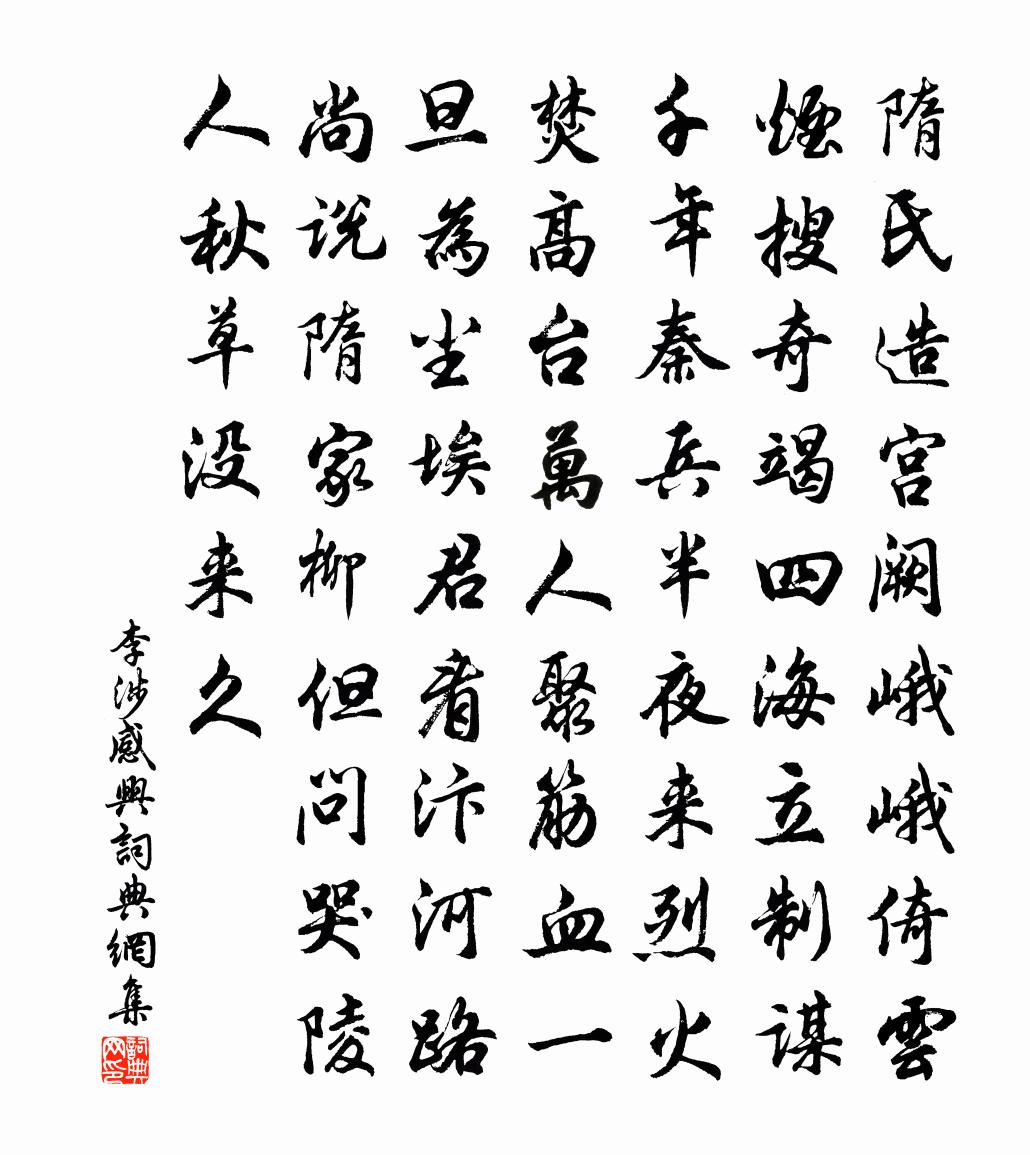 隋氏造宫阙峨峨倚雲
煙搜奇竭四海立制谋
千年秦兵半夜来烈火
焚高台萬人聚筋血一
旦為尘埃君看汴河路
尚说隋家柳但问哭陵
人秋草没来久
李涉感興詞典網集
詞典网印